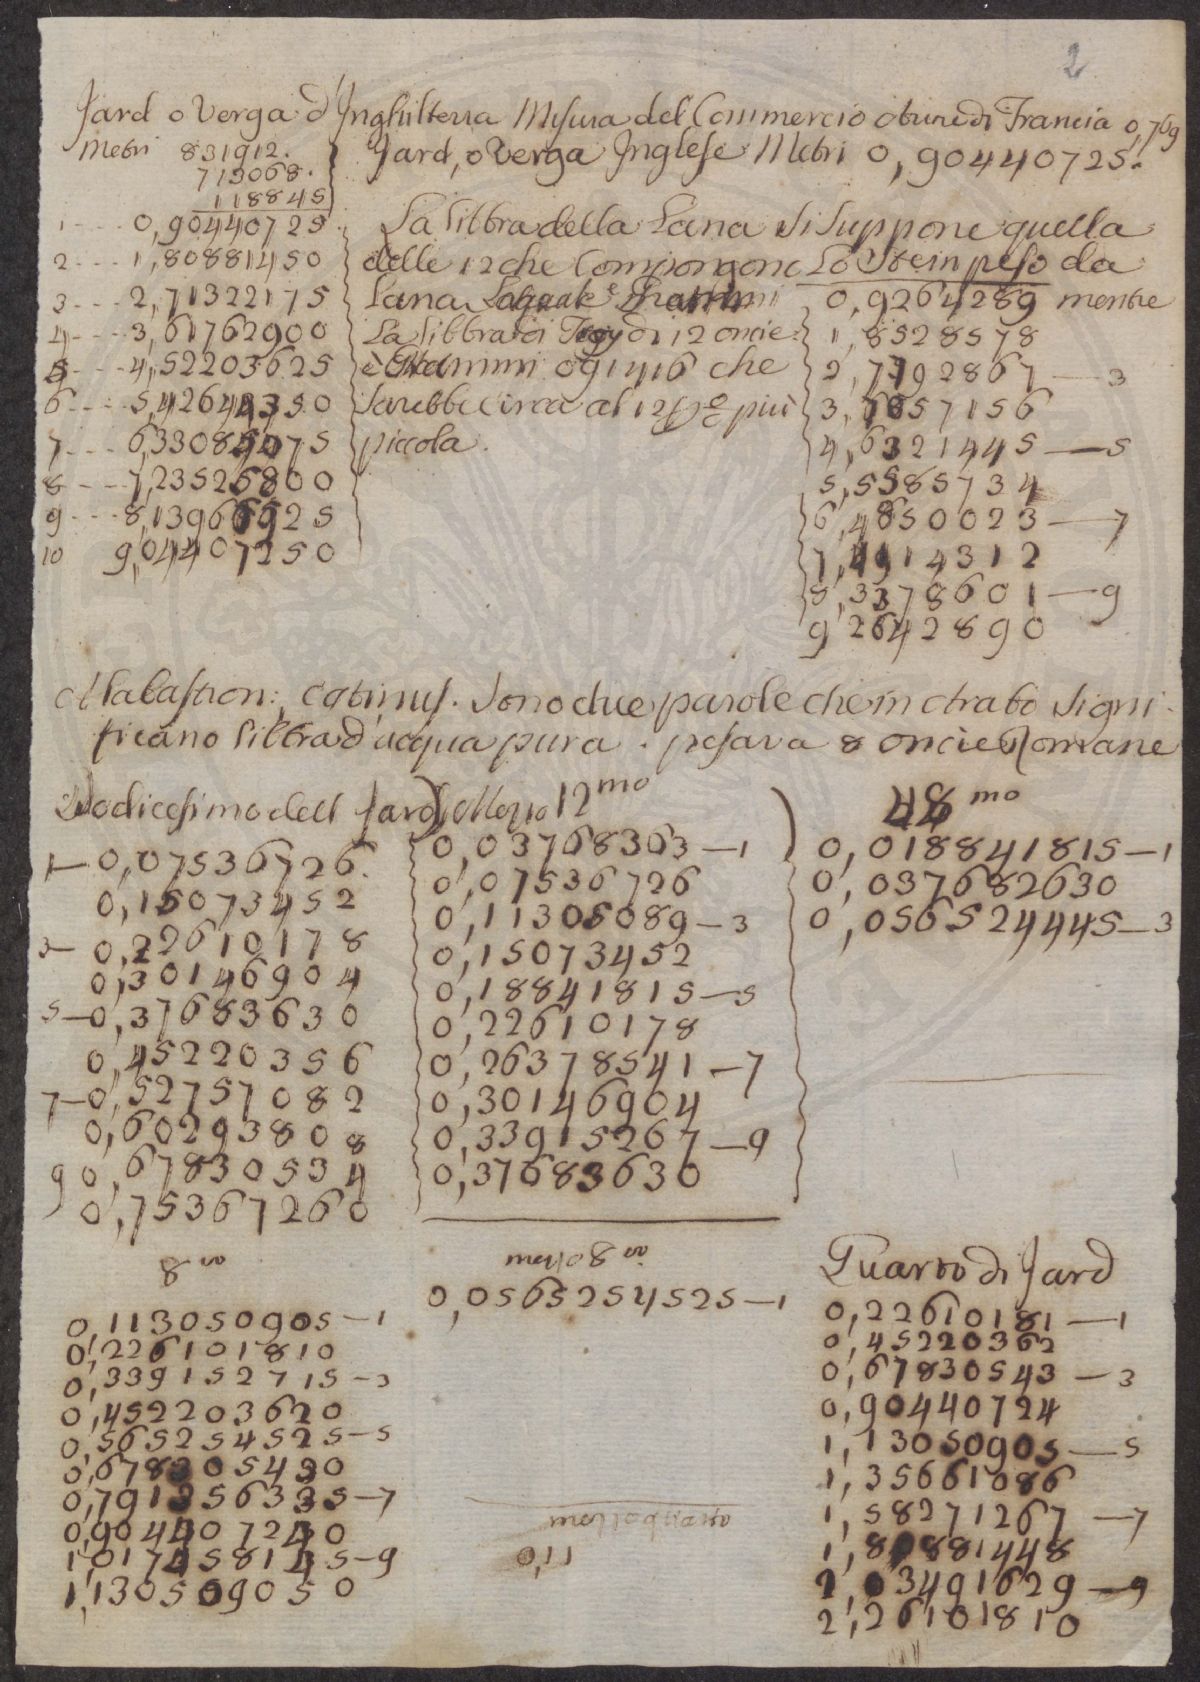 2
Jard o Verga d'Inghilterra Misura del Commercio
di Francia 0,769
Metri 831912.
713068.
118845
Jard, o Verga Inglese Metri 0,90440725.
1 --- 0,90440725
2 --- 1,80881450
3 --- 2,71322175
4 --- 3,61762900
5 --- 4,52203625
6 --- 5,42644350
7 --- 6,33085075
8 --- 7,23525800
9 --- 8,13966525
10 9,04407250
La libbra della Lana si suppone quella
delle 12 che Compongono Lo Stein peso da
Lana
La libbra di Troy di 12 oncie
è che
sarebbe circa al 12 p% più
piccola.
0,9264289 mentre
1,8528578
2,7792867 — 3
3,7057156
4,6321445 — 5
5,5585734
6,4850023 — 7
7,4114312
8,3378601 — 9
9,2642890
Catinus. Sono due parole che in signi-
ficano libbra d'acqua pura. pesava 8 oncie Romane
Dodicesimo dell Jard
1 — 0,07536726.
0,15073452
3 — 0,22610178
0,30146904
5 — 0,37683630
0,45220356
7 — 0,52757082
0,60293808
9 0,67830534
0,75367260
Mezzo 12mo
0,03768363 — 1
0,07536726
0,11305089 — 3
0,15073452
0,18841815 — 5
0,22610178
0,26378541 — 7
0,30146904
0,33915267 — 9
0,37683630
48mo
0,018841815 — 1
0,037682630
0,056524445 — 3
8vo
0,113050905 — 1
0,226101810
0,339152715 — 3
0,452203620
0,565254525 — 5
0,678305430
0,791356335 — 7
0,904407240
1,017458145 — 9
1,130509050
0,0565254525 — 1
Quarto di Jard
0,22610181 — 1
0,45220362
0,67830543 — 3
0,90440724
1,13050905 — 5
1,35661086
1,58271267 — 7
1,80881448
2,03491629 — 9
2,26101810